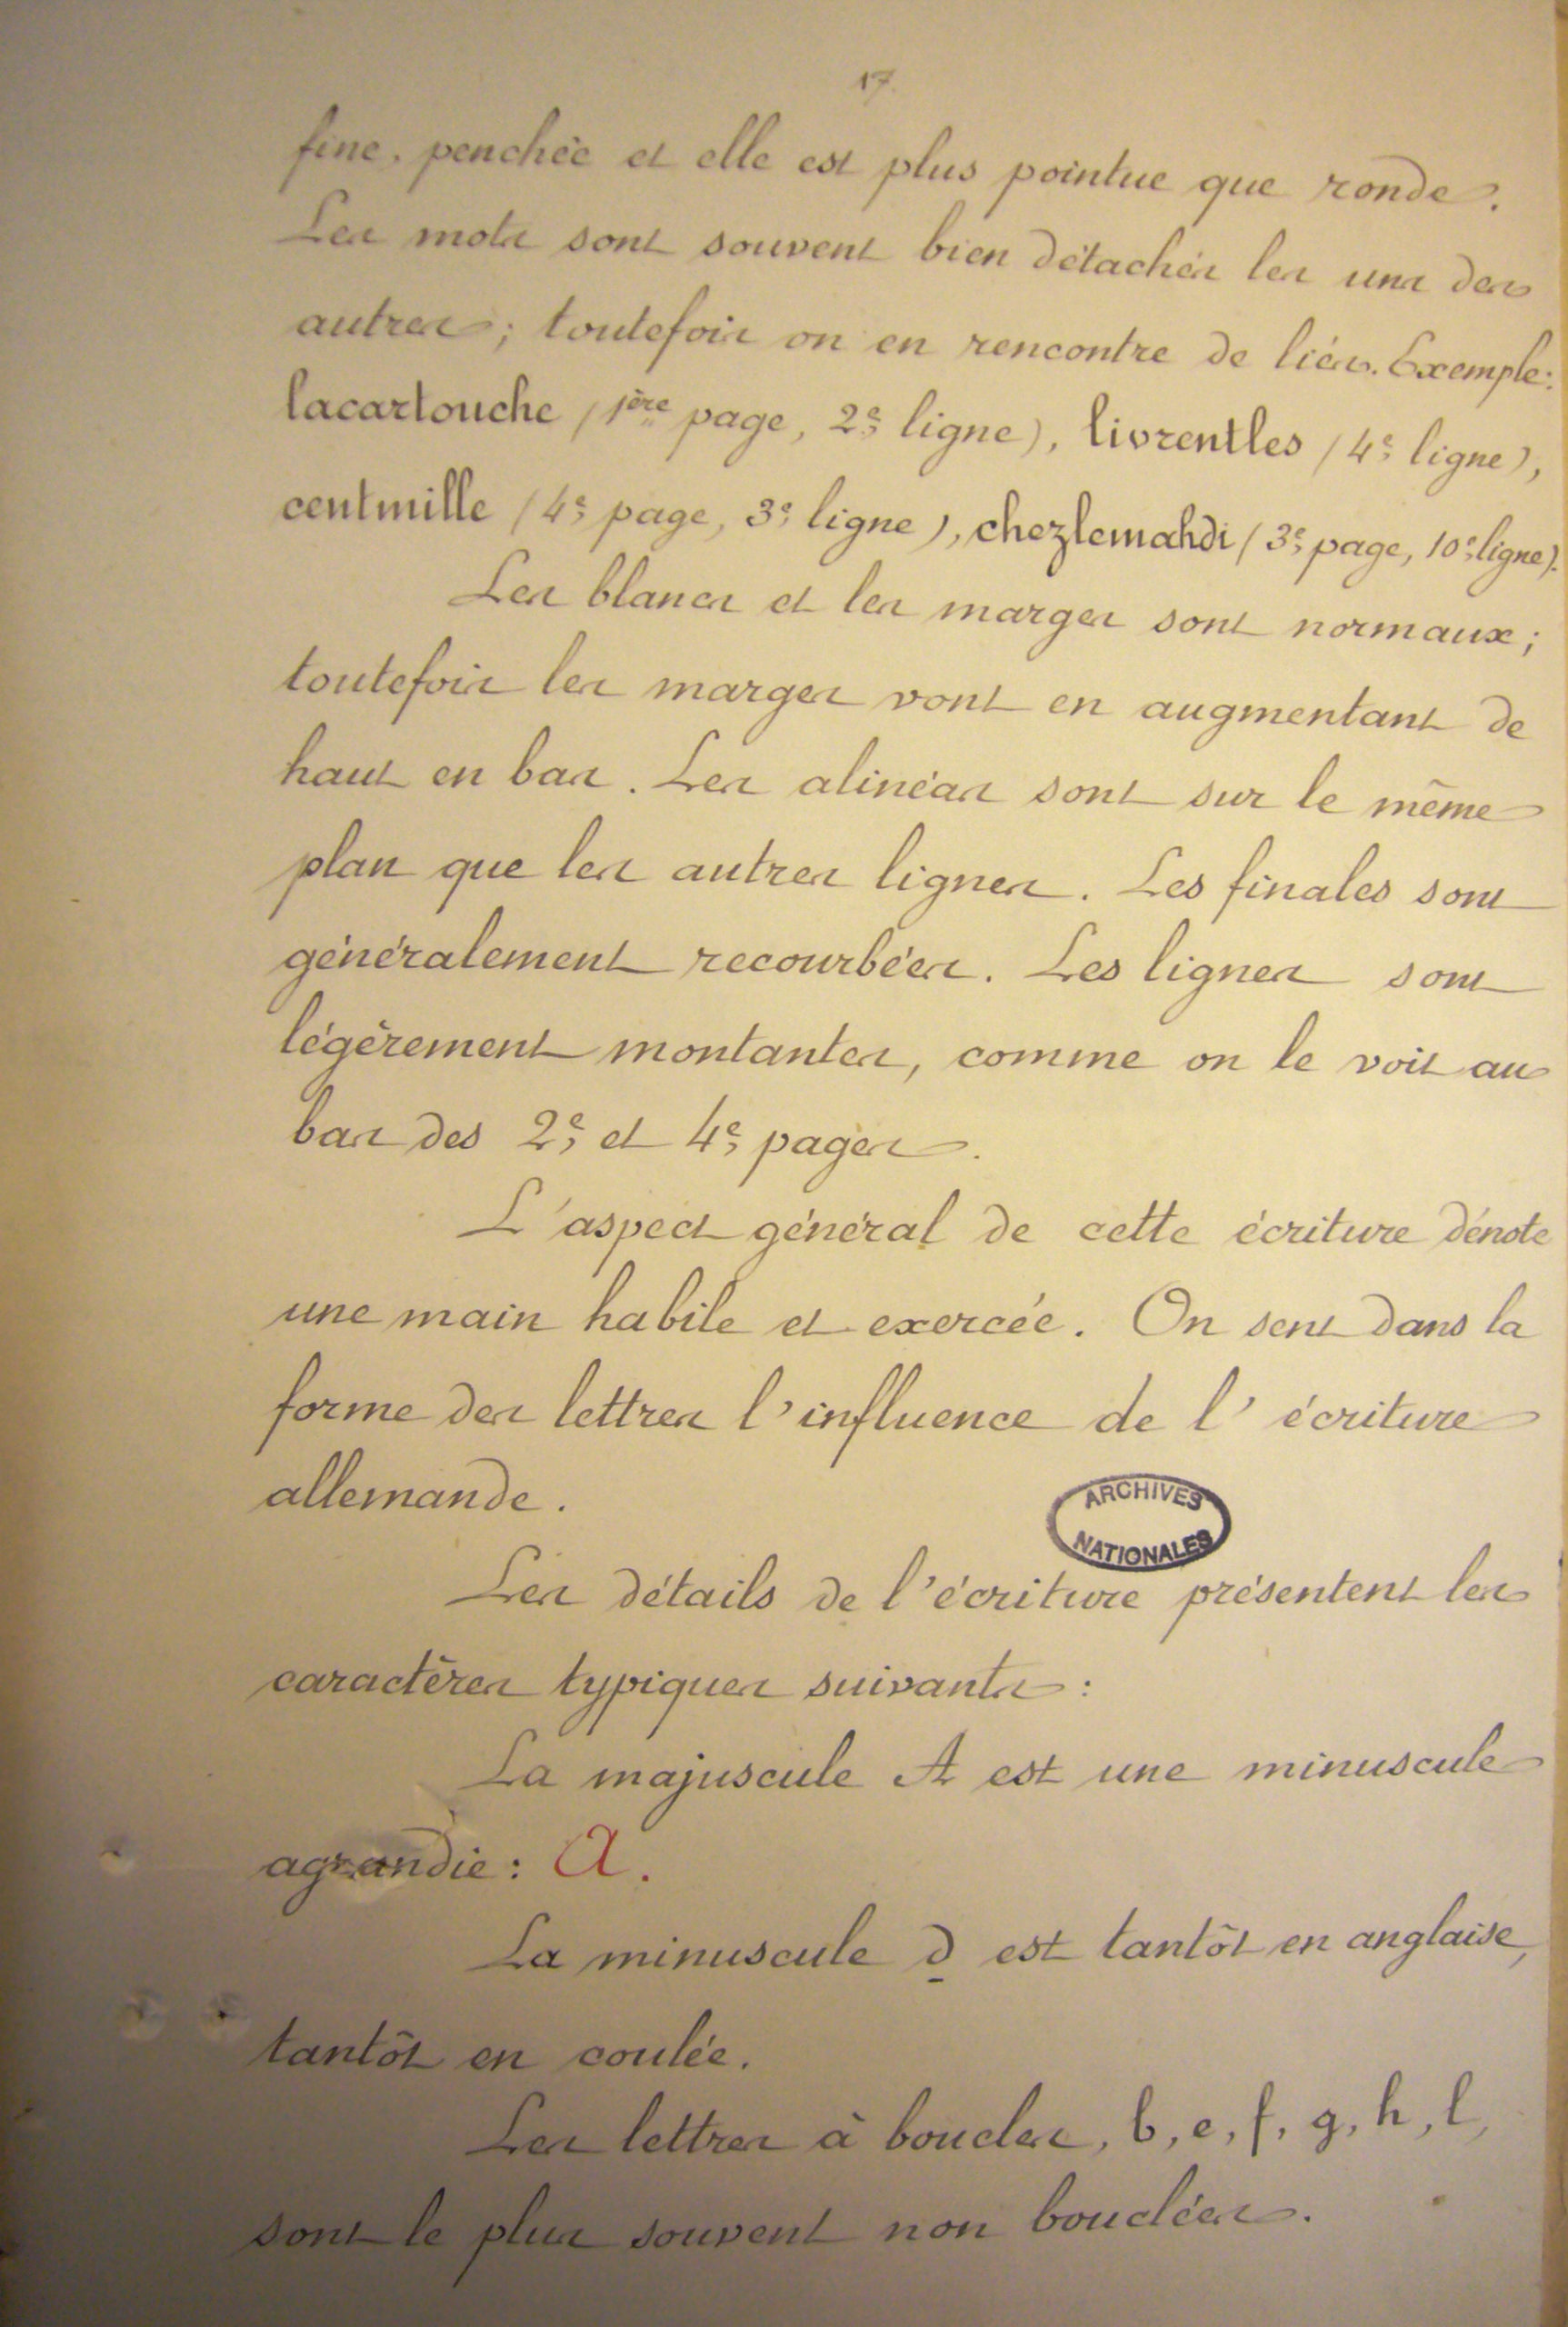 17.
fine, penchée et elle est plus pointue que ronde.
Les mots sont souvent bien détachés les uns des
autres ; toutefois on en rencontre de liés. Exemple :
lacartouche (1ère page, 2e ligne), livrentles (4e ligne),
centmille (4e page, 3e ligne), chezlemahdi (3e page, 10e ligne).
Les blancs et les marges sont normaux ;
toutefois les marges vont en augmentant de
haut en bas. Les alinéas sont sur le même
plan que les autres lignes. Les finales sont
généralement recourbées. Les lignes sont
légèrement montantes, comme on le voit au
bas des 2e et 4e pages.
L'aspect général de cette écriture dénote
une main habile et exercée. On sent dans la
forme des lettres l'influence de l'écriture
allemande.
ARCHIVES
NATIONALES
Les détails de l'écriture présentent les
caractères typiques suivants :
La majuscule A est une minuscule
agrandie : a.
La minuscule d est tantôt en anglaise,
tantôt en coulée.
Les lettres à boucles, b, e, f, g, h, l,
sont le plus souvent non bouclées.